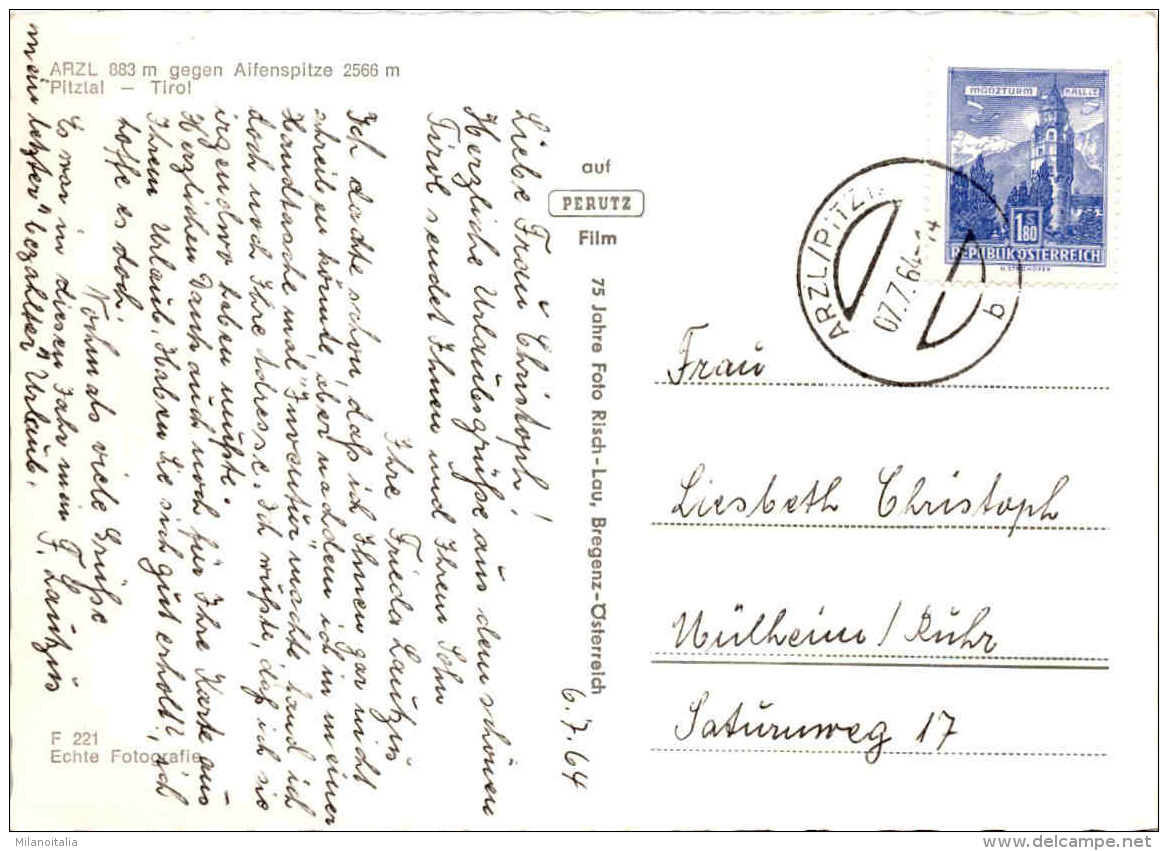 ARZL 883 m gegen Aifenspitze 2566 m
Pitztal — Tirol
6.7.64
Liebe Frau Christoph!
Herzliche Urlaubsgrüße aus dem schönen
Tirol sendet Ihnen und Ihrem Sohn
Ihre Frieda Lautzus
Ich dachte schon, daß ich Ihnen gar nicht
schreiben könnte, aber nachdem ich in meiner
Handtasche mal "Inventur" machte, fand ich
doch noch Ihre Adresse. Ich wußte, daß ich sie
irgendwo haben mußte.
Herzlichen Dank auch noch für Ihre Karte aus
Ihrem Urlaub. Haben Sie sich gut erholt?, ich
hoffe es doch.
Nochmals viele Grüße
F. Lautzus
Es war in diesem Jahr mein
mein letzter "bezahlter" Urlaub.
auf
PERUTZ
Film
75 Jahre Foto Risch-Lau, Bregenz-Österreich
MÜNZTURM HALL I.T.
1 S 80
REPUBLIK ÖSTERREICH
ARZL/PITZT.
07.7.64
b
Frau
Liesbeth Christoph
Mülheim/Ruhr
Saturnweg 17
F 221
Echte Fotografie
Milanoitalia
delcampe.net